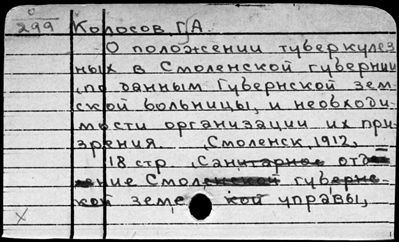 299 Колосов, Г.А.
О положении туберкулез
ных в Смоленской губернии
, по данным Губернской зем-
ской больницы, и необходи-
мости организации их при-
зрения. , Смоленск, 1912,
18 стр , Санитарное отд
ение Смоленской губернс-
кой земс кой управы,